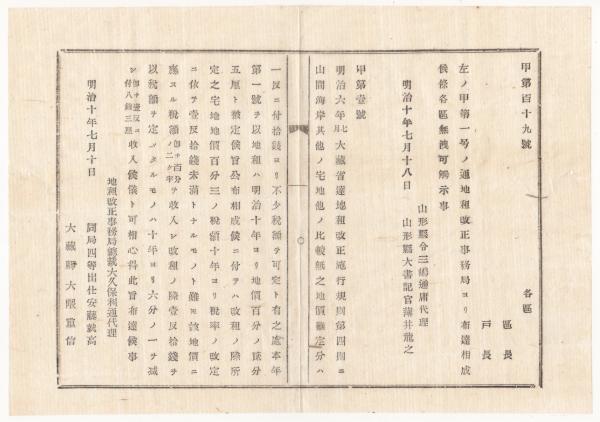 甲第百十九號
各區
區長
戸長
左ノ甲第一号ノ通地租改正事務局ヨリ布達相成
候條各區無洩可觸示事
山形縣令三島通庸代理
明治十年七月十八日　山形縣大書記官薄井龍之
甲第壹號
明治六年
大藏省達地租改正施行規則第四則ニ
山間海岸其他ノ宅地他ノ比較無之地價難定分ハ
一反ニ付拾錢ヨリ不少税額ヲ可定ト有之處本年
第一號ヲ以地租ハ明治十年ヨリ地價百分ノ貳分
五厘ト被定候旨公布相成候ニ付テハ改租ノ際所
定之宅地地價百分三ノ税額十年ヨリ税率ノ改定
ニ依テ壹反拾錢未滿トナルモノト雖モ該地價ニ
應スル税額
ヲ收入シ改租ノ際壹反拾錢ヲ
以税額ヲ定メタルモノハ十年ヨリ六分ノ一ヲ減
シ
付八錢三厘
收入候儀ト可相心得此旨布達候事
地租改正事務局總裁大久保利通代理
明治十年七月十日　同局四等出仕安藤就高
大藏卿大隈重信